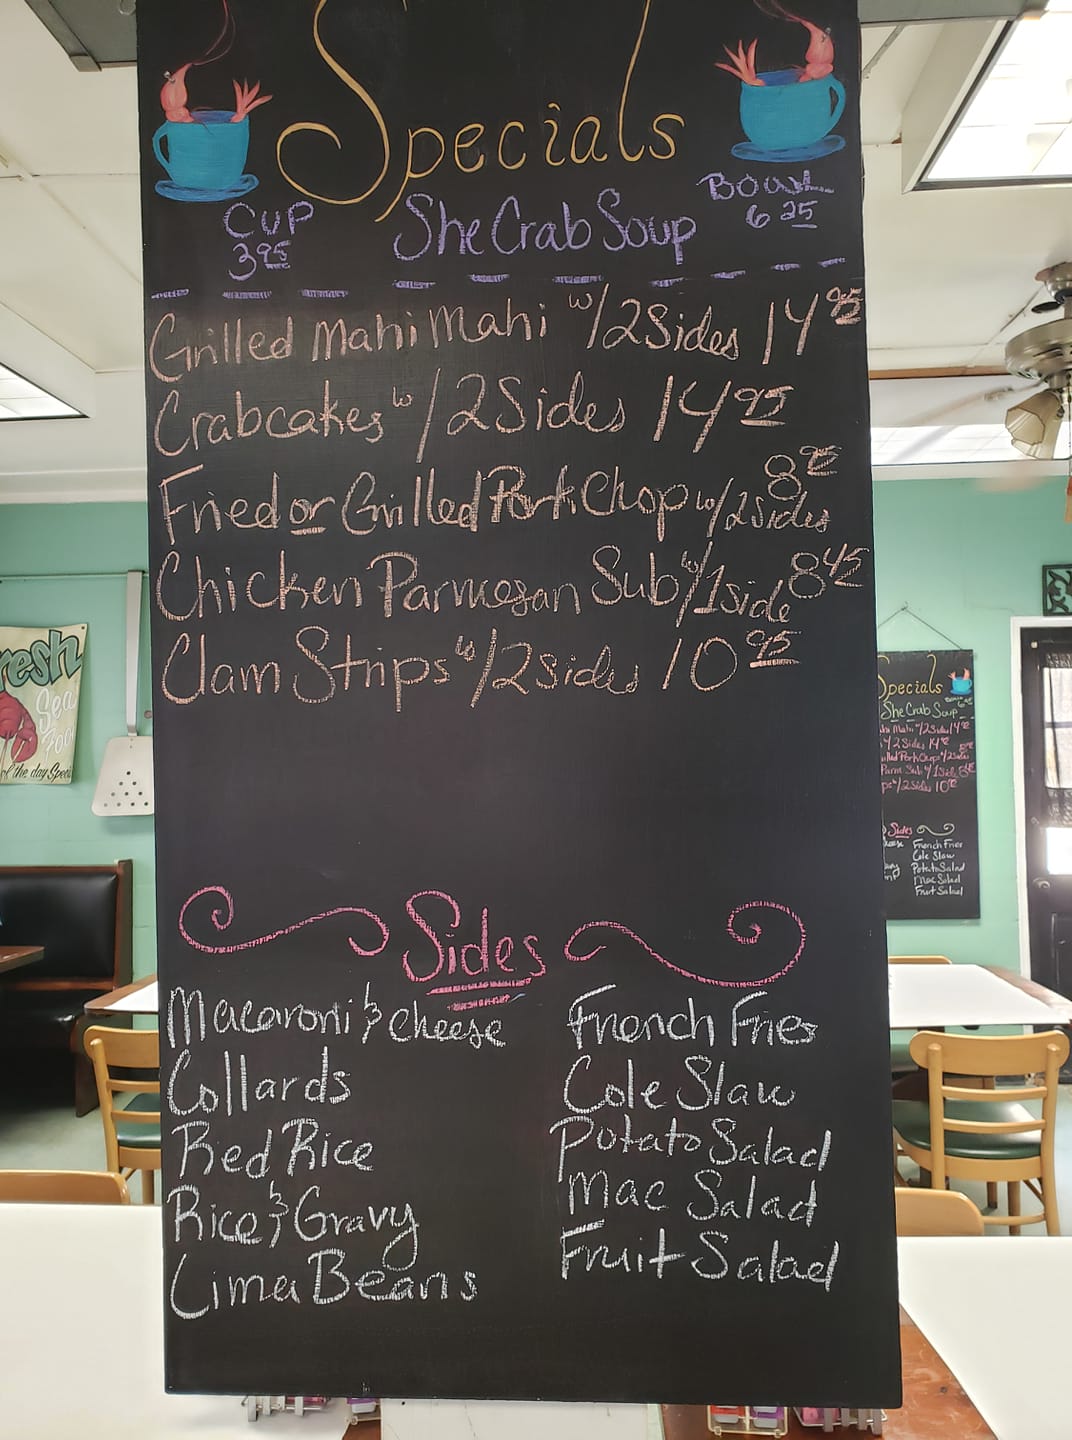 Specials
Cup
3.95
She Crab Soup
Bowl
6.25
Grilled Mahi Mahi w/2 Sides 14.95
Crabcakes w/2 Sides 14.95
Fried or Grilled Pork Chop w/2 Sides
Chicken Parmesan Sub w/1 side 8.45
Clam Strips w/2 sides 10.95
Sides
Macaroni & Cheese
Collards
Red Rice
Rice & Gravy
Lima Beans
French Fries
Cole Slaw
Potato Salad
Mac Salad
Fruit Salad
resh
Sea
Foo
of the day Speci
Specials
She Crab Soup
Sides
French Fries
Cole Slaw
Potato Salad
Mac Salad
Fruit Salad